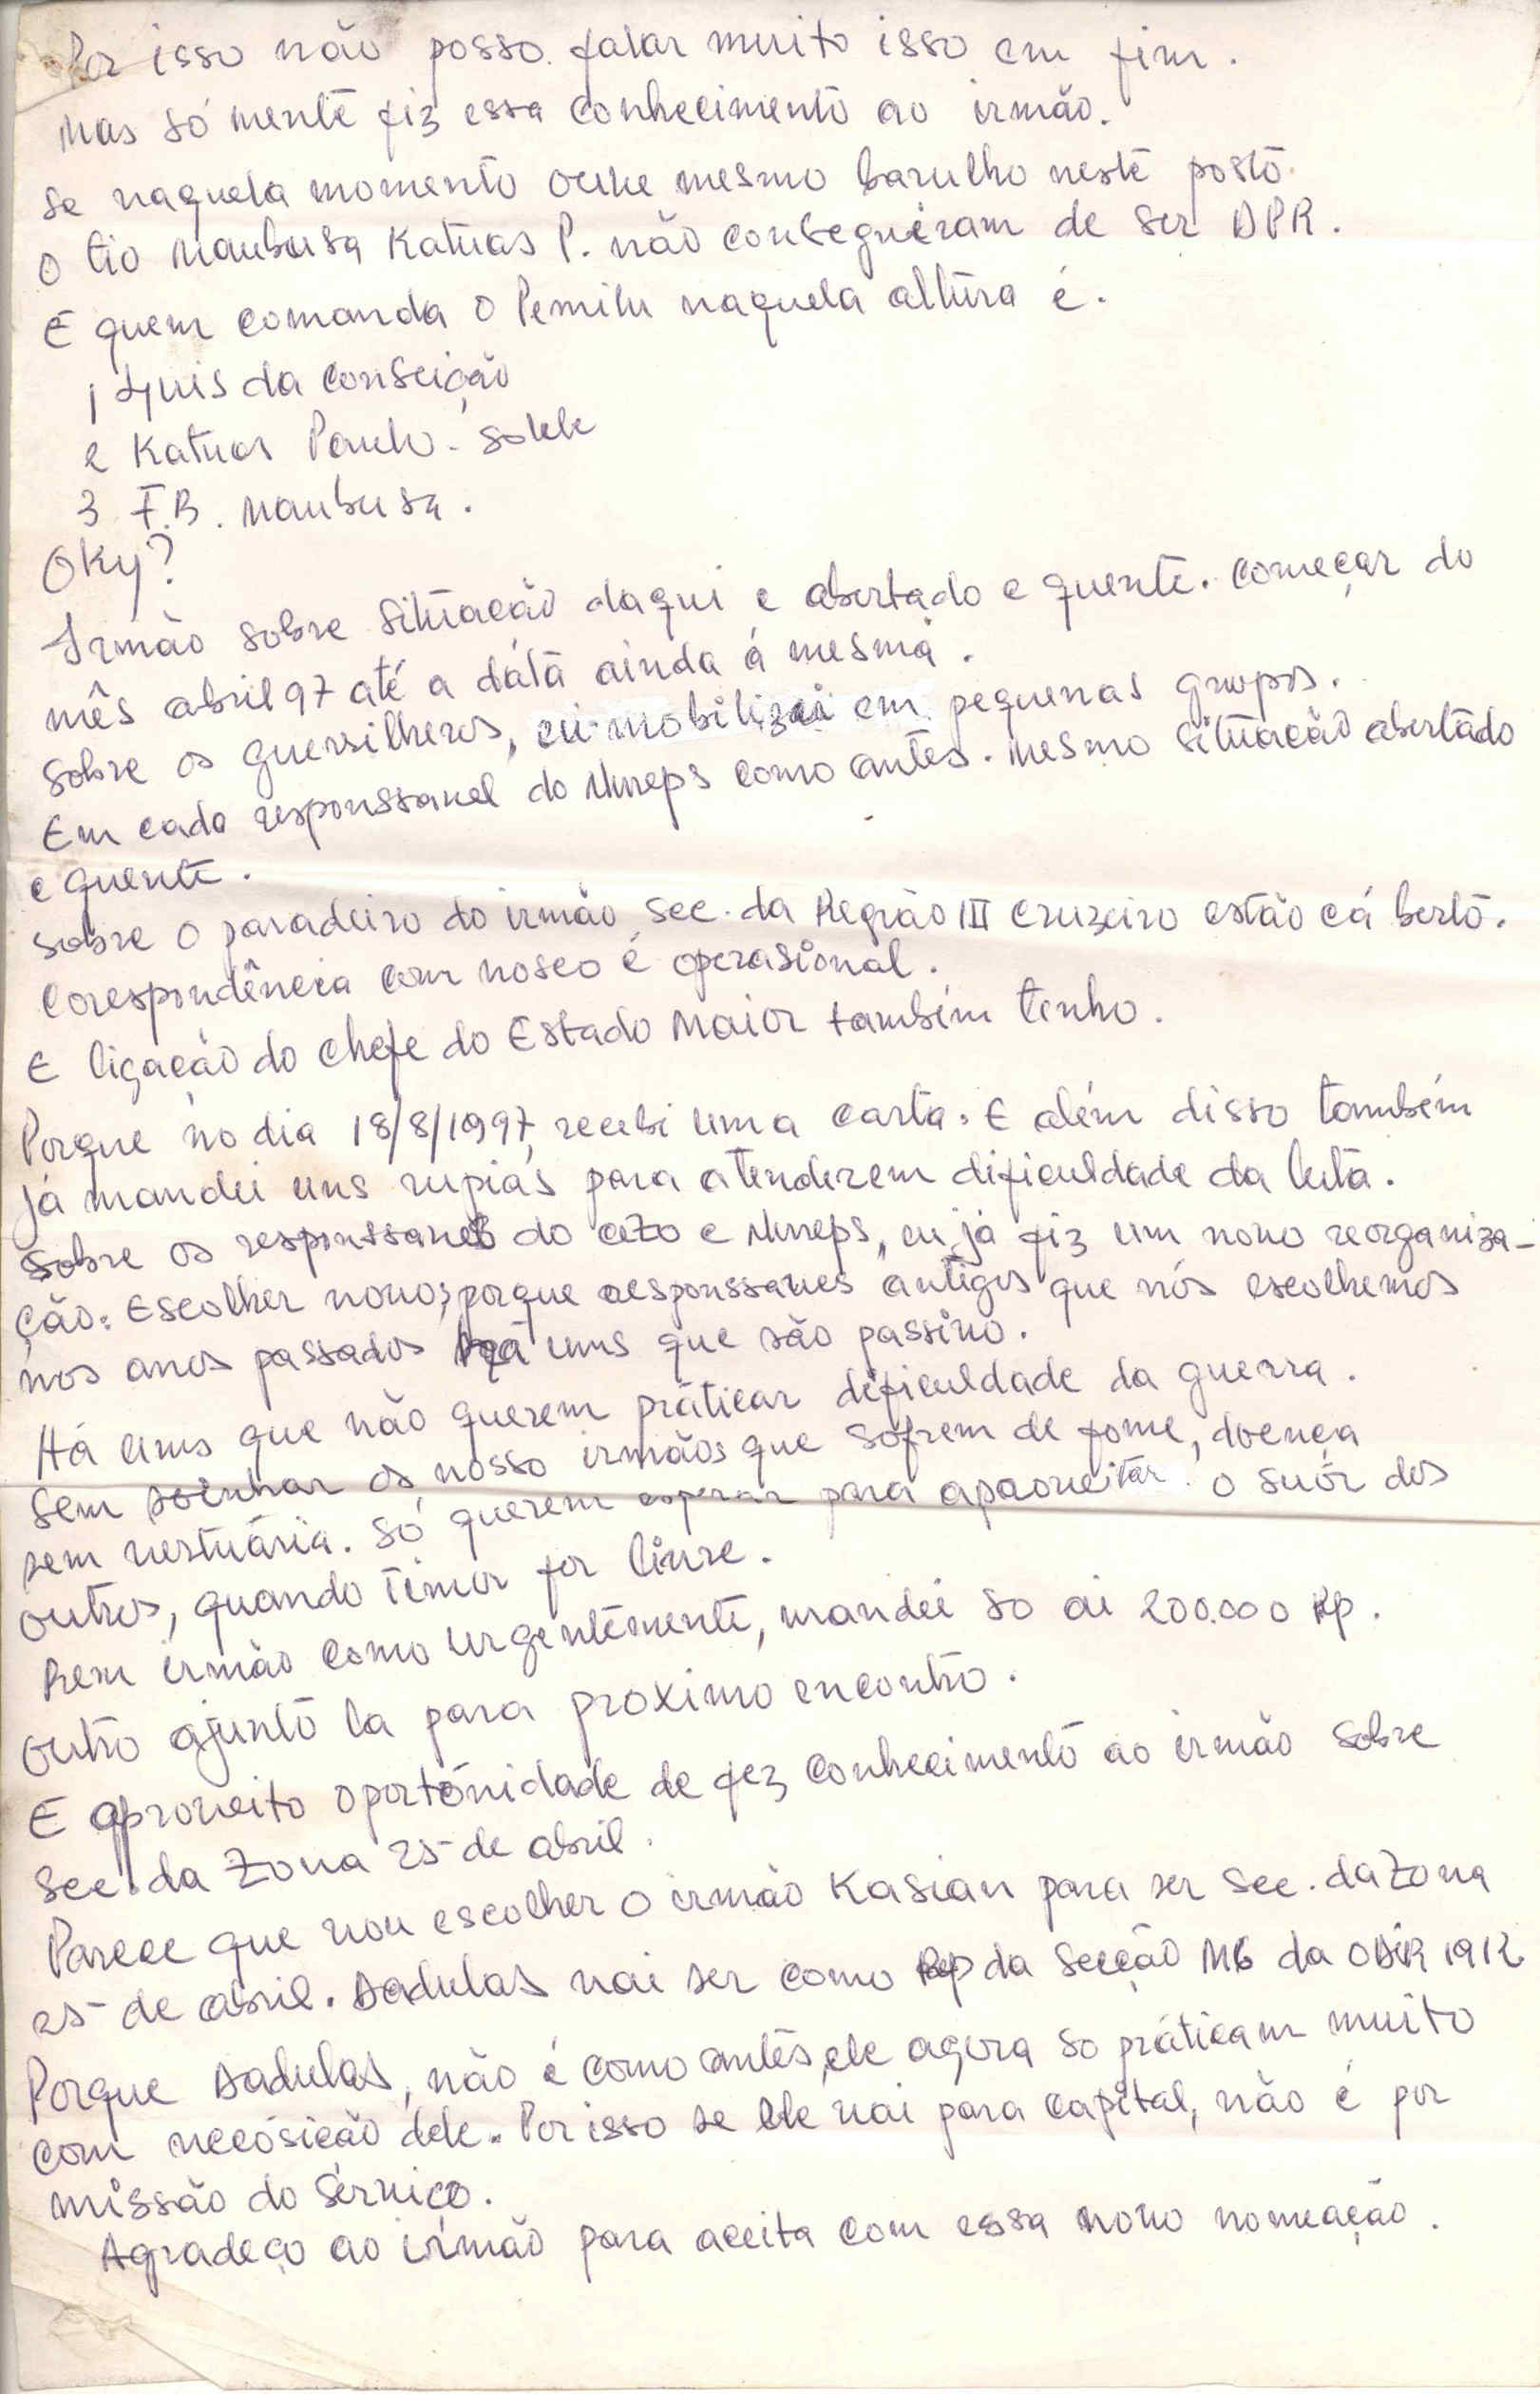 Por isso não posso falar muito isso em fim.
Mas só mente fiz essa conhecimento ao irmão.
Se naquela momento ouve mesmo barulho neste posto.
O tio Maubusa Katuas P. não conseguiram de ser DPR.
E quem comanda o Pemilu naquela altura é.
1 Luis da Conseição
2 Katuas Paulo. Solele
3 F.B. Maubusa.
Oky?
Irmão sobre situação daqui e abertado e quente. Começar do
mês abril 97 até a dáta ainda á mesma.
Sobre os guersilheros, eu mobilizei em pequenas grupos.
Em cada responssavel do Nureps como antes. Mesmo situação abertado
e quente.
Sobre o paradeiro do irmão Sec. da Região III Cruzeiro estão cá berto.
Corespondência com nosco é operasional.
E ligação do chefe do Estado Maior também tenho.
Porque no dia 18/8/1997, recebi uma carta. E além disso também
já mandei uns rupiás para atenderem dificuldade da luta.
Sobre os responssaveis do cezo e Nureps, eu já fiz um novo reorganiza-
ção. Escolher novos, porque responssaves antigos que nós escolhemos
nos anos passados há uns que são passivo.
Há uns que não querem práticar dificuldade da guerra.
Sem soenhar os nosso irmãos que sofrem de fome, doença
sem vestuária. Só querem esperar para aproveitar o suór dos
outros, quando Timor for livre.
Bem irmão como urgentemente, mandei so ai 200.000 Rp.
Outro ajunto la para proximo encontro.
E aproveito oportónidade de fez conhecimento ao irmão sobre
Sec. da Zona 25 de abril.
Parece que vou escolher o irmão Kasian para ser Sec. da Zona
25 de abril. Dadulas vai ser como Rep da Secção M6 da ODIR 1912
Porque Dadulas, não é como antes, ele agora so práticam muito
com necósicão dele. Por isso se ele vai para capital, não é por
missão do sérviço.
Agradeço ao irmão para aceita com essa novo nomeação.